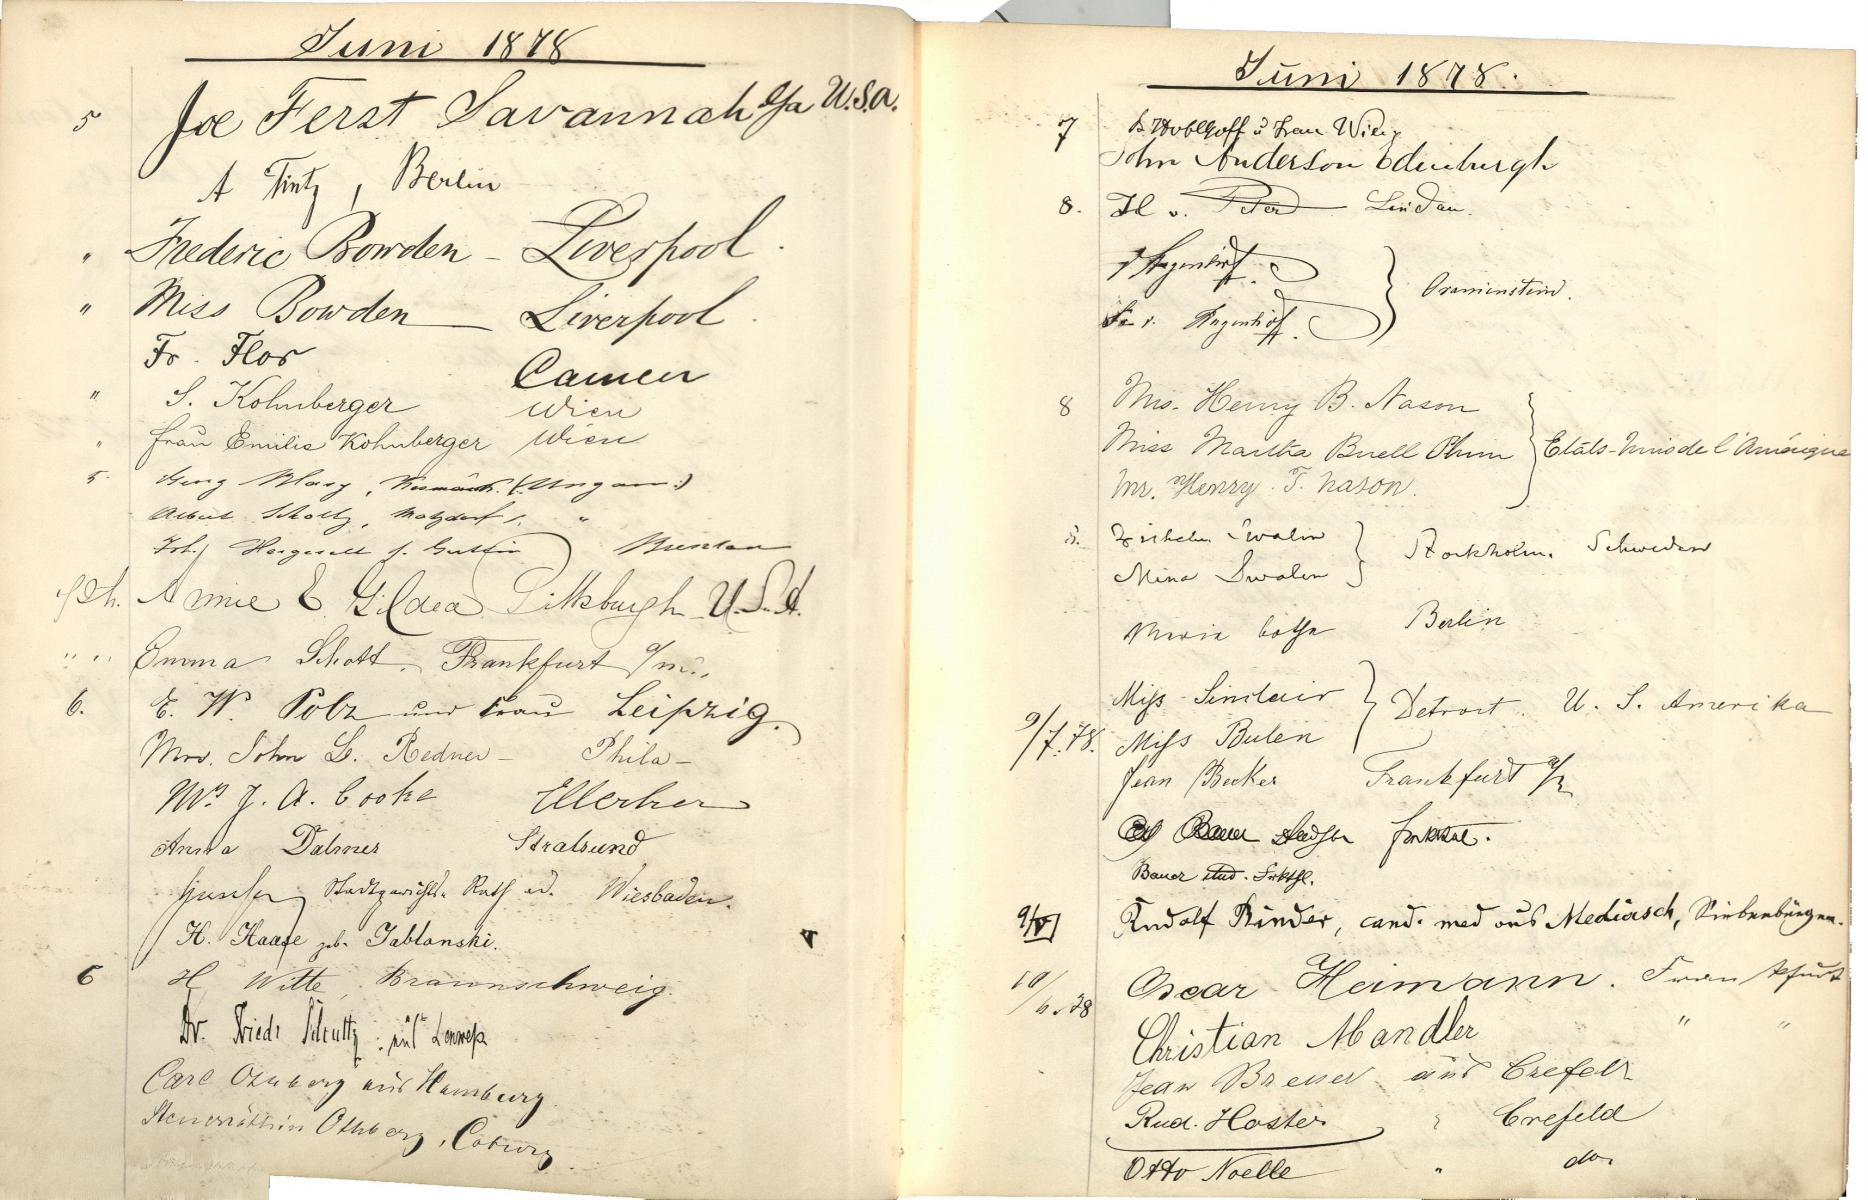 Juni 1878
5 Joe Ferst Savannah Ga U.S.A.
A Tintz, Berlin
" Frederic Bowden - Liverpool.
" Miss Bowden Liverpool.
Fr. Flor Camen
" S. Kohnberger Wien
" Frau Emilie Kohnberger Wien
5. Georg (Ungarn.)
Albert Scholtz, Matzdorf "
Joh. Breslau
5th. Annie E. Gildea Pittsburgh U.S.A.
" " Emma Schott, Frankfurt a/m.
6. E. W. Polz und Frau Leipzig.
Mrs. John L. Redner - Phila -
Mrs J. A. Cooke
Anna Dalmer Stralsund
Stadtgerichts-Rath Wiesbaden.
H. Haase geb. Jablonski.
6 H. Witte, Braunschweig.
Dr. Friedr Schultz aus Lennep
Carl Othberg aus Hamburg
Othberg, Coburg
Juni 1878.
7 u Frau Wien
John Anderson Edinburgh
8. v. Lindau.
Oranienstein.
8 Mrs. Henry B. Nason
Miss Martha Buell Plum Etats-Unis de l'Amérique
Mr. Henry T. Nason.
Wilhelm Svalin Stockholm. Schweden
Mina Svalin
Maria Berlin
Miss Sinclair Detroit. U. S. Amerika
9/7.78. Miss Bulen
Jean Becker Frankfurt a/
Bauer stud.
Rudolf Binder, cand. med aus Mediasch, Siebenbürgen.
10/6.78 Oscar Heimann. Frankfurt
Christian Mandler " "
Jean aus Crefeld
Rud. Hoster " Crefeld
Otto Noelle " do.